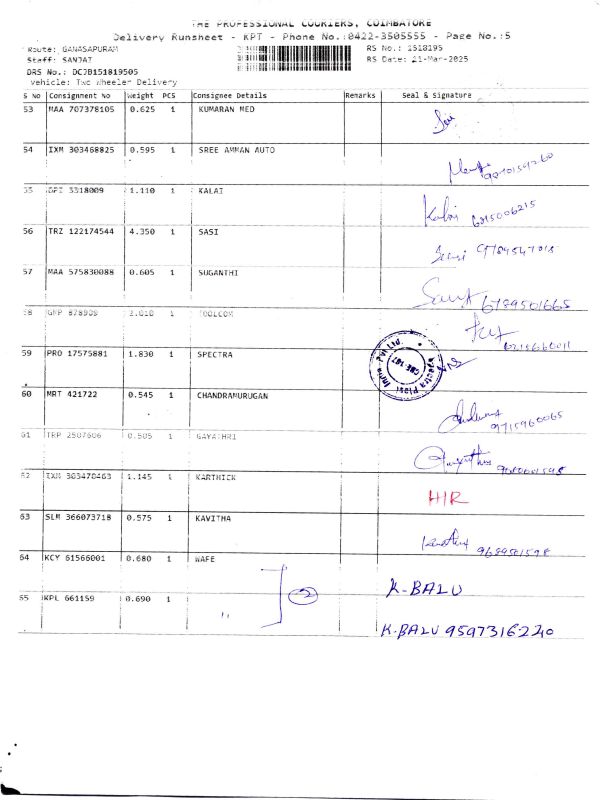 THE PROFESSIONAL COURIERS, COIMBATORE
Delivery Runsheet - KPT - Phone No.:0422-3505555 - Page No.:5
Route: GANASAPURAM
RS No.: 1518195
Staff: SANJAI
RS Date: 21-Mar-2025
DRS No.: DCJB151819505
Vehicle: Two Wheeler Delivery
S No Consignment No Weight PCS Consignee Details Remarks Seal & Signature
53 MAA 707378105 0.625 1 KUMARAN MED
54 IXM 303468825 0.595 1 SREE AMMAN AUTO
55 3318009 1.110 1 KALAI Kalai 6215006215
56 TRZ 122174544 4.350 1 SASI
57 MAA 575830088 0.605 1 SUGANTHI 6789501665
58 GMP 878909 2.010 1 TOOLCOM
59 PRO 17575881 1.830 1 SPECTRA
60 MRT 421722 0.545 1 CHANDRAMURUGAN 9715960065
61 TRP 2507606 0.505 1 GAYATHRI
62 IXM 303470463 1.145 1 KARTHICK H/R
63 SLM 366073718 0.575 1 KAVITHA
64 KCY 61566001 0.680 1 WAFE K-BALU
65 KPL 661159 0.690 1 ,, 2 K-BALU 9597316220